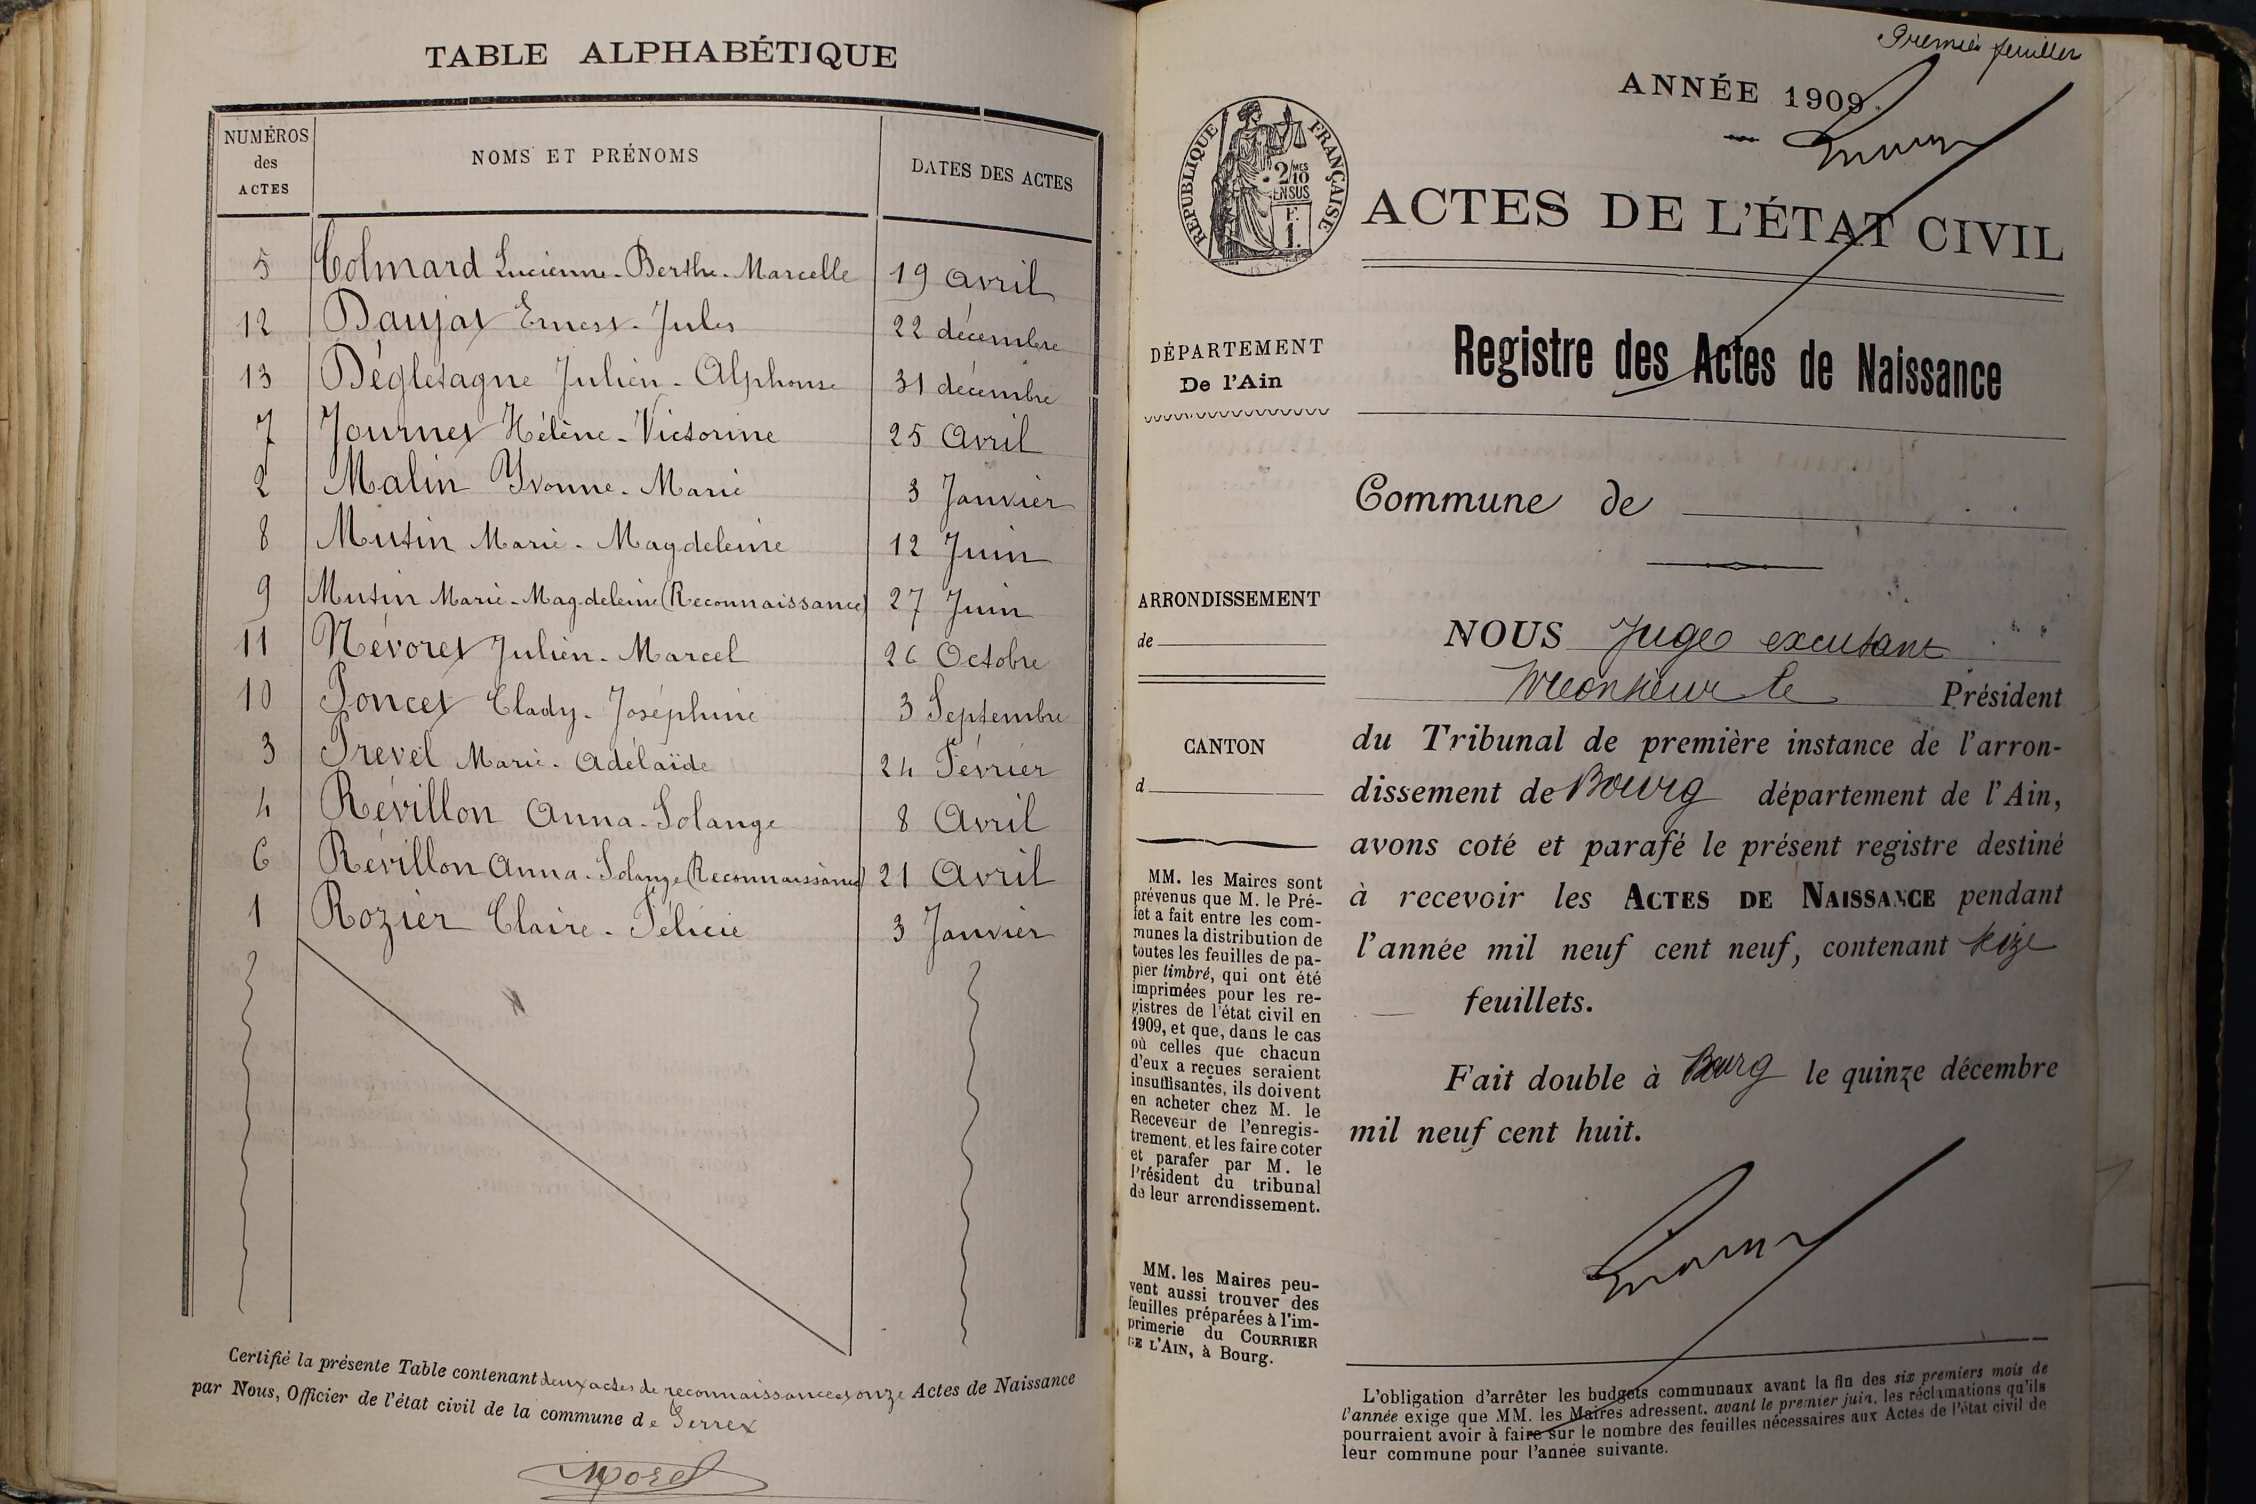 TABLE ALPHABÉTIQUE
NUMÉROS
des
ACTES
NOMS ET PRÉNOMS
DATES DES ACTES
5 Colmard Lucienne-Berthe-Marcelle 19 avril
12 Daujat Ernest-Jules 22 décembre
13 Dégletagne Julien-Alphonse 31 décembre
7 Journet Hélène-Victorine 25 Avril
2 Malin Yvonne-Marie 3 Janvier
8 Mutin Marie-Magdeleine 12 Juin
9 Mutin Marie-Magdeleine (Reconnaissance) 27 Juin
11 Névoret Julien-Marcel 26 Octobre
10 Poncet Clady-Joséphine 3 Septembre
3 Prevel Marie-Adélaïde 24 Février
4 Révillon Anna-Solange 8 Avril
6 Révillon Anna-Solange (Reconnaissance) 21 Avril
1 Rozier Claire-Félicie 3 Janvier
Certifié la présente Table contenant deux actes de reconnaissance et onze Actes de Naissance
par Nous, Officier de l'état civil de la commune de Serrex
Morel
Premier feuillet
ANNÉE 1909.
RÉPUBLIQUE FRANÇAISE
2/10 MES
EN SUS
F.
1.
ACTES DE L'ÉTAT CIVIL
Registre des Actes de Naissance
DÉPARTEMENT
De l'Ain
Commune de
ARRONDISSEMENT
de
CANTON
d
NOUS Juge excusant
Monsieur le Président
du Tribunal de première instance de l'arron-
dissement de Bourg département de l'Ain,
avons coté et parafé le présent registre destiné
à recevoir les ACTES DE NAISSANCE pendant
l'année mil neuf cent neuf, contenant seize
feuillets.
Fait double à Bourg le quinze décembre
mil neuf cent huit.
MM. les Maires sont
prévenus que M. le Pré-
fet a fait entre les com-
munes la distribution de
toutes les feuilles de pa-
pier timbré, qui ont été
imprimées pour les re-
gistres de l'état civil en
1909, et que, dans le cas
où celles que chacun
d'eux a reçues seraient
insuffisantes, ils doivent
en acheter chez M. le
Receveur de l'enregis-
trement, et les faire coter
et parafer par M. le
Président du tribunal
de leur arrondissement.
MM. les Maires peu-
vent aussi trouver des
feuilles préparées à l'im-
primerie du COURRIER
DE L'AIN, à Bourg.
L'obligation d'arrêter les budgets communaux avant la fin des six premiers mois de
l'année exige que MM. les Maires adressent, avant le premier juin, les réclamations qu'ils
pourraient avoir à faire sur le nombre des feuilles nécessaires aux Actes de l'état civil de
leur commune pour l'année suivante.